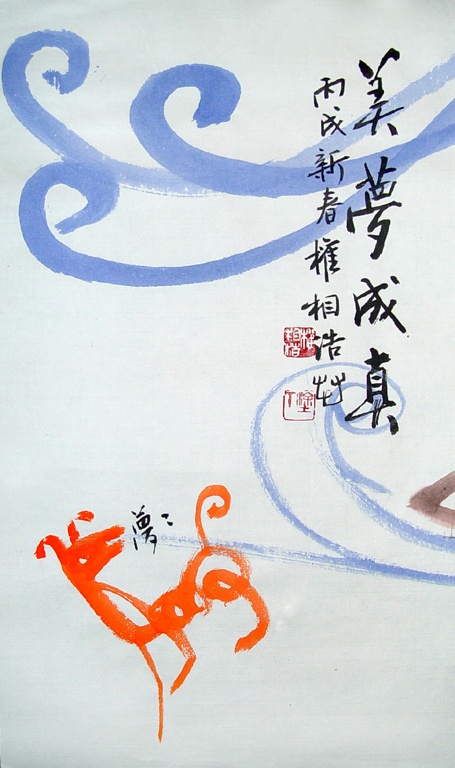 美夢成真
丙戌新春權相浩艸